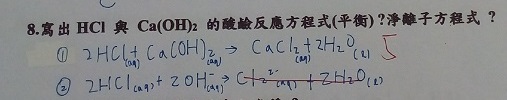 8.寫出 HCl 與 Ca(OH)₂ 的酸鹼反應方程式(平衡)?淨離子方程式 ?
① 2HCl(aq) + Ca(OH)₂(aq) → CaCl₂(aq) + 2H₂O(l) 5
② 2HCl(aq) + 2OH⁻(aq) → Cl₂²⁻(aq) + 2H₂O(l)